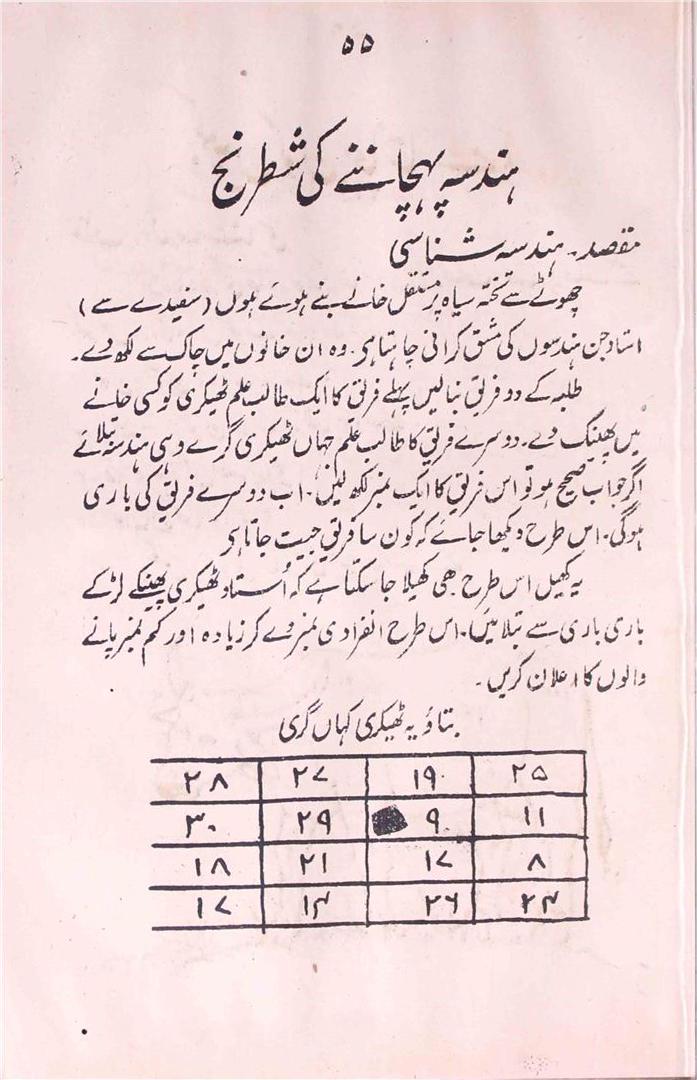 ۵۵
ہندسہ پہچاننے کی شطرنج
مقصد۔ ہندسہ شناسی
چھوٹے سے تختہ سیاہ پر مستقل خانے بنے ہوئے ہوں (سفیدے سے)
استاد جن ہندسوں کی مشق کرانی چاہتا ہی۔ وہ ان خانوں میں چاک سے لکھ دے۔
طلبہ کے دو فریق بنالیں پہلے فریق کا ایک طالب علم ٹھیکری کو کسی خانے
میں پھینک دے۔ دوسرے فریق کا طالب علم جہاں ٹھیکری گرے وہی ہندسہ بتلائے
اگر جواب صحیح ہو تو اس فریق کا ایک نمبر لکھ لیں۔ اب دوسرے فریق کی باری
ہوگی۔ اس طرح دیکھا جائے کہ کون سا فریق جیت جاتا ہی
یہ کھیل اس طرح بھی کھیلا جا سکتا ہے کہ اُستاد ٹھیکری پھینکے لڑکے
باری باری سے بتلائیں۔ اس طرح انفرادی نمبر دے کر زیادہ اور کم نمبر پانے
والوں کا اعلان کریں۔
بتاؤ یہ ٹھیکری کہاں گری
۲۵ ۱۹ ۲۷ ۲۸
۱۱ ۹ ۲۹ ۳۰
۸ ۱۷ ۲۱ ۱۸
۲۴ ۲۶ ۱۴ ۱۷